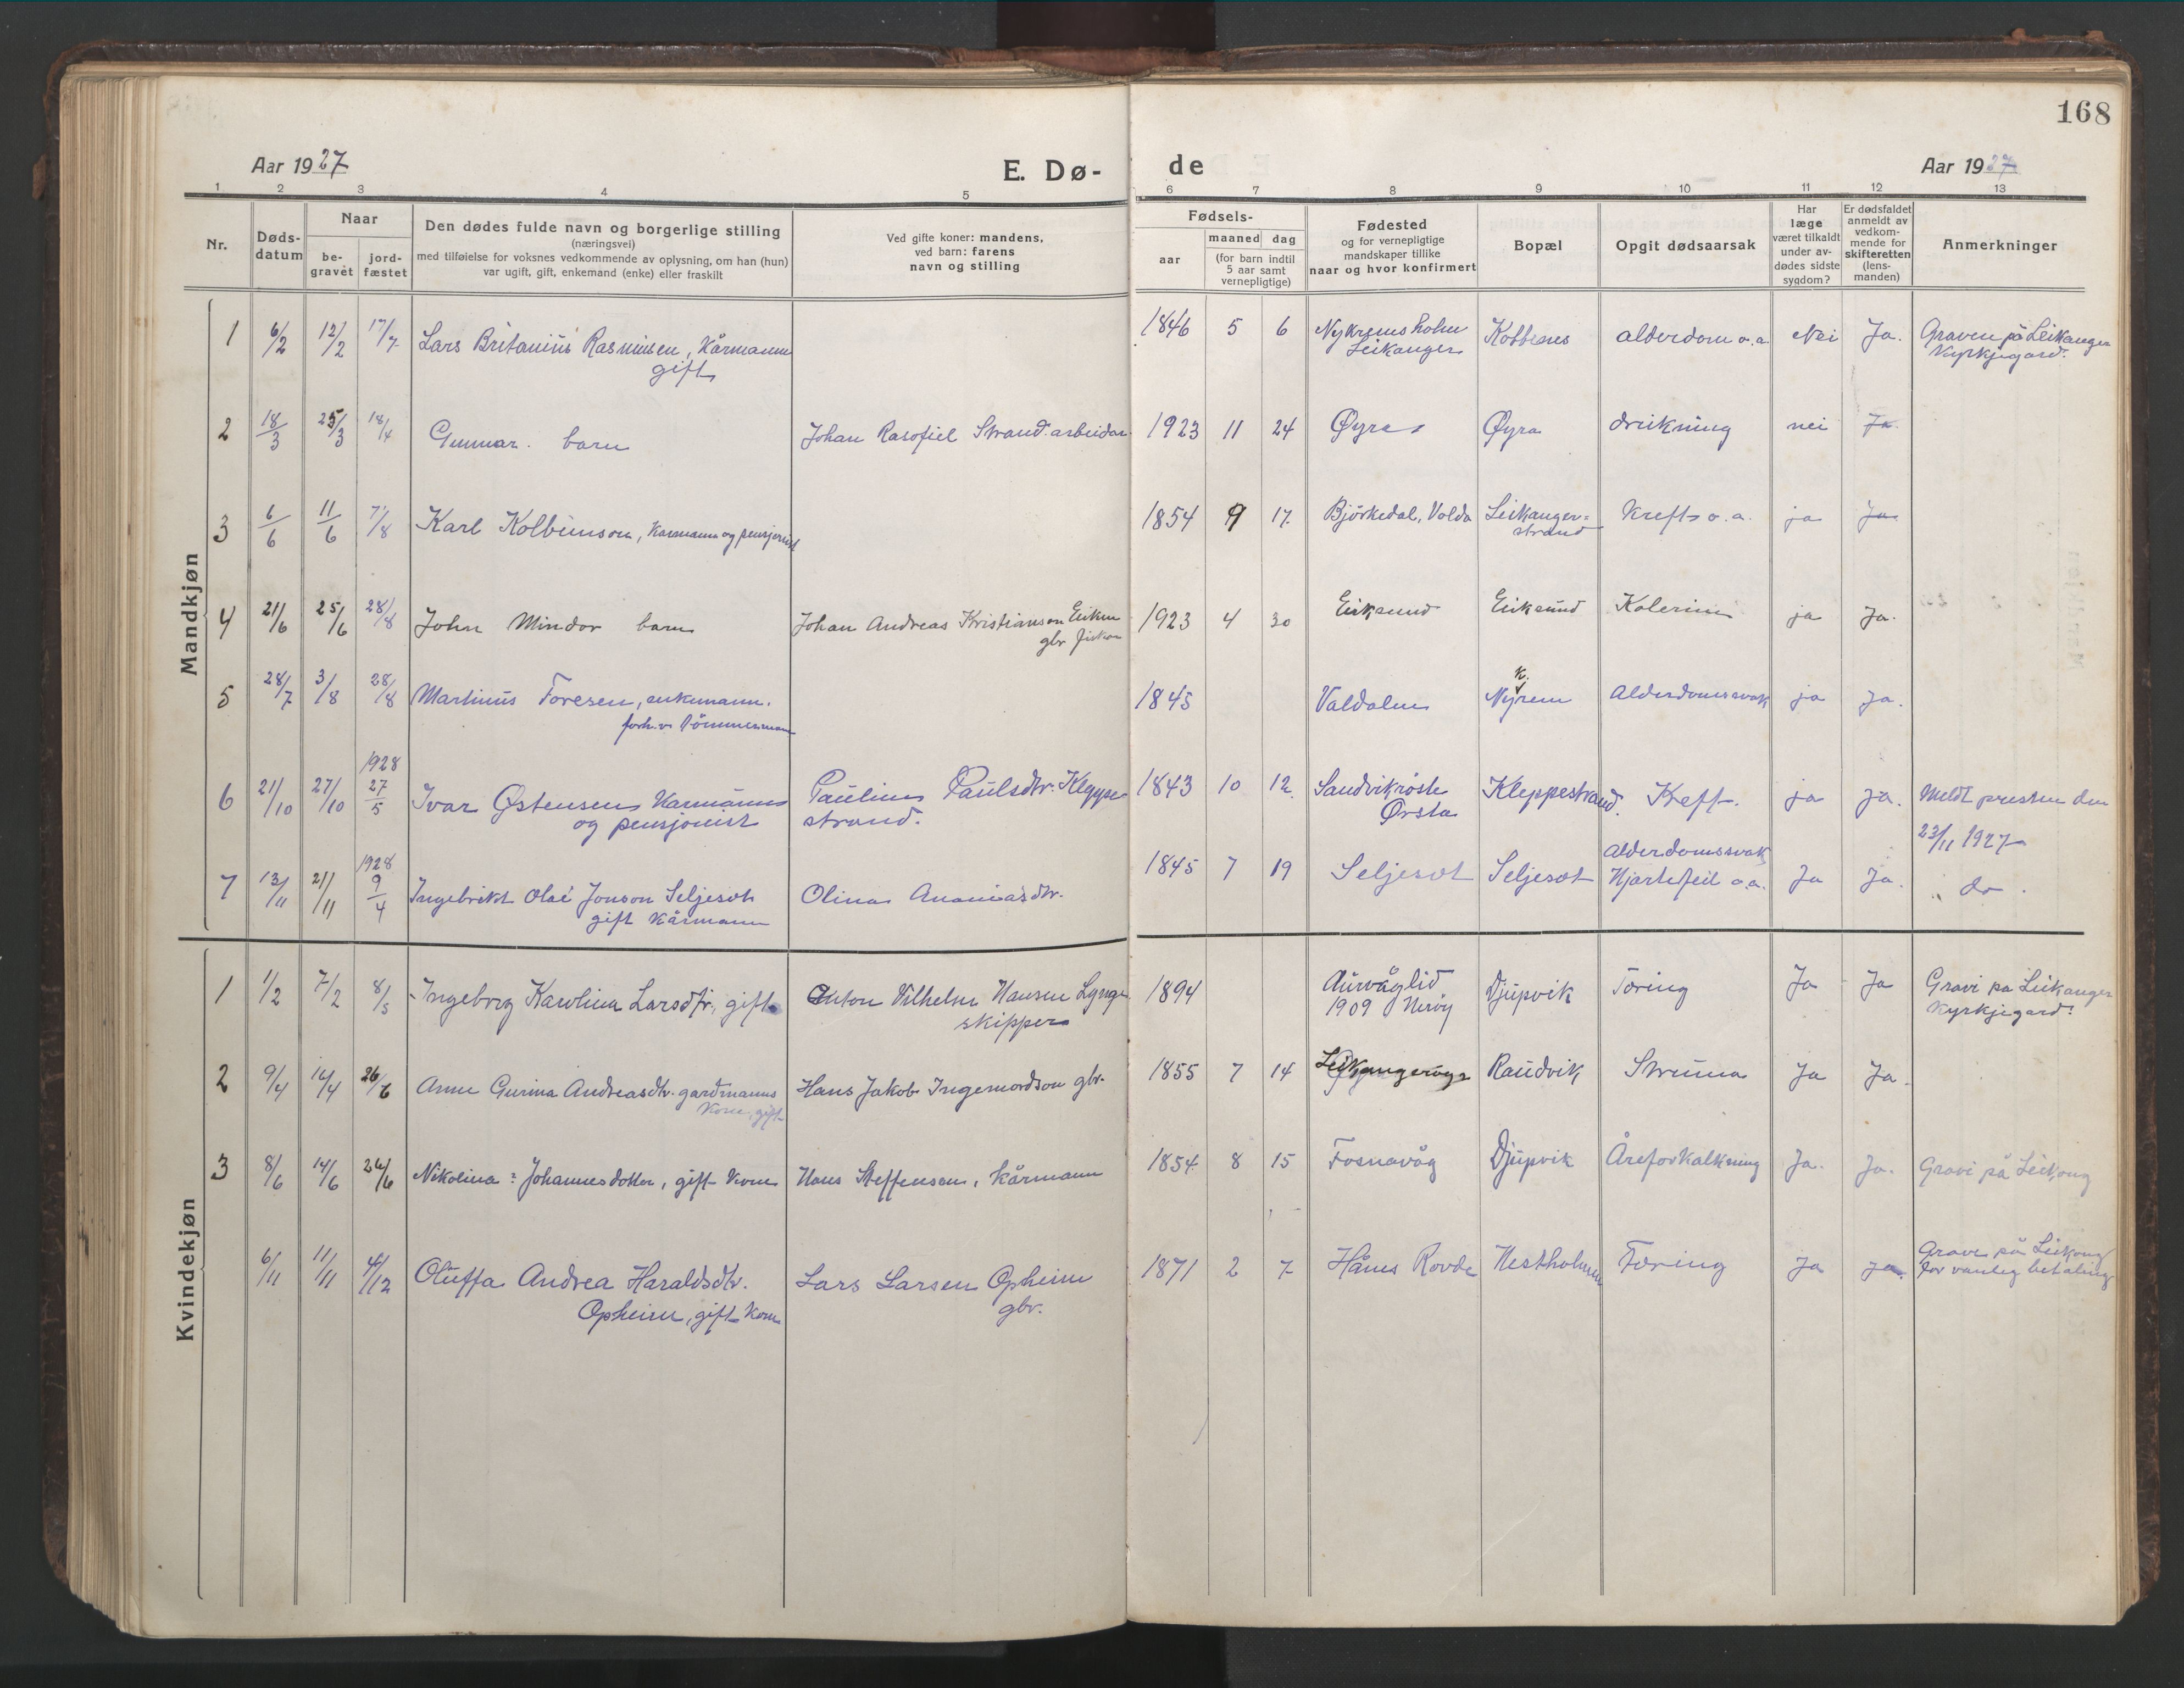 168
Aar 1927
E. Dø-
de
Aar 1927
1 2 3 4 5 6 7 8 9 10 11 12 13
Nr.
Døds-
datum
Naar
be-
gravet
jord-
fæstet
Den dødes fulde navn og borgerlige stilling
(næringsvei)
med tilføielse for voksnes vedkommende av oplysning, om han (hun)
var ugift, gift, enkemand (enke) eller fraskilt
Ved gifte koner: mandens,
ved barn: farens
navn og stilling
Fødsels-
aar
maaned dag
(for barn indtil
5 aar samt
vernepligtige)
Fødested
og for vernepligtige
mandskaper tillike
naar og hvor konfirmert
Bopæl
Opgit dødsaarsak
Har
læge
været tilkaldt
under av-
dødes sidste
sygdom?
Er dødsfaldet
anmeldt av
vedkom-
mende for
skifteretten
(lens-
manden)
Anmerkninger
Mandkjøn
1 6/2 12/2 17/7 Lars Britanius Rasmussen, Kårmann 1846 5 6 Nykremsholm alderdom o.a. Nei Ja. Graven på Leikanger
gift Leikanger Kyrkjegard.
2 18/3 25/3 18/4 Gunnar. barn Johan Strand arbeidar 1923 11 24 Øyra Øyra drukning nei Ja.
3 6/6 11/6 7/8 Karl Kolbeinson, Kårmann og pensjonist 1854 9 17. Bjørkedal, Volda Leikanger= Kreft o.a. ja Ja
strand
4 21/6 25/6 28/8 John Mindor barn Johan Andreas Kristiansen 1923 4 30 Eiksund Eiksund ja Ja.
gbr fiskar
5 28/7 3/8 28/8 Martinus Toresen, enkemann. 1845 Valdalen Nyrem Alderdomssvak ja Ja.
K.
forh.v. Tømmermann
1928
6 21/10 27/10 27/5 Ivar Østensen Karmann Pauline Paulsdtr. Kleppe 1843 10 12. Sandvikrøste Kleppestrand. Kreft. ja ja. Meldt presten den
og pensjonist strand. Ørsta 23/11 1927
1928 Alderdomssvak
7 13/11 21/11 9/4 Ingebrikt Olai Jonson Seljeset Olina Ananiasdtr. 1845 7 19 Seljeset Seljeset Hjartefeil o.a. Ja Ja. " do.
gift Kårmann
Kvindekjøn
1 1/2 7/2 8/5 Ingeborg Karolina Larsdtr, gift Anton Vilhelm Hansen Lynge 1894 Aurvåglid Djupvik Tæring Ja Ja Gravi på Leikanger
skipper 1909 Herøy Kyrkjegard.
2 9/4 16/4 26/6 Anne Gurina Andreasdtr. gardmanns Hans Jakob Ingemordson gbr. 1855 7 14 Raudvik Struma Ja Ja.
Kone, gift
3 8/6 14/6 26/6 Nikolina Johannesdotter, gift Kone Hans Steffensen, Kårmann 1854 8 15 Fosnavåg Djupvik Åreforkalkning Ja. Ja. Gravi på Leikong
6/11 11/11 4/12 Oluffa Andrea Haraldsdtr. Lars Larsen Opheim 1871 2 7 Hånes Rovde Hestholmen Tæring Ja ja. Graven på Leikong
Opheim, gift Kone gbr. for vanleg betaling